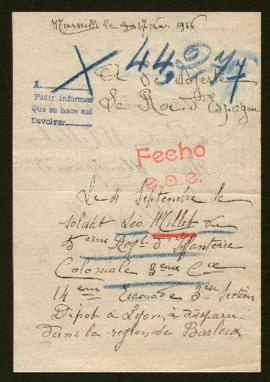 Marseille le 30 7bre 1916
44277
A S. Majesté
Le Roi d'Espagne
Pedir informes
Que se hace así
Devolver
Fecho
Le 4 Septembre le
soldat Léo Millet du
5 eme Regt d'Infanterie
Coloniale 8eme Cie
14 eme Escouade 3me Section
Dépot à Lyon, a disparu
dans la region de Barleux